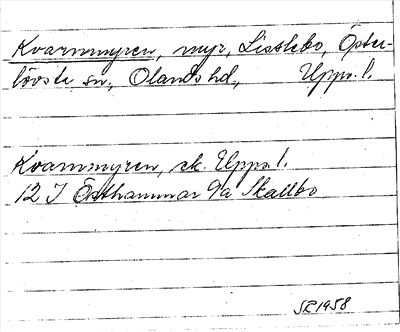 Kvarnmyren, myr, Lisslebo, Öster-
lövsta sn, Olands hd, Upps. l.
Kvarnmyren, ek. Upps. l.
12 I Östhammar 9a Skallbo
SR 1958